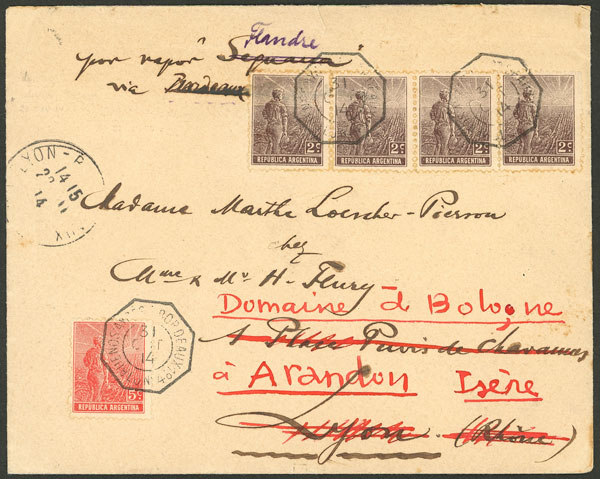 Flandre
por vapor Sequana
via Bordeaux
2c 2c 2c 2c
REPUBLICA ARGENTINA REPUBLICA ARGENTINA REPUBLICA ARGENTINA REPUBLICA ARGENTINA
31
14
31
14
LYON-R
14 15
11
14
Madame Marthe Loescher-Pierson
chez
Mme & Mr H. Fleury
Domaine d Bologne
1 Place Puvis de Chavannes
à Arandon Isère
Lyon (Rhône)
BUENOS-AYRES A BORDEAUX
31
OCT
14
5c
REPUBLICA ARGENTINA